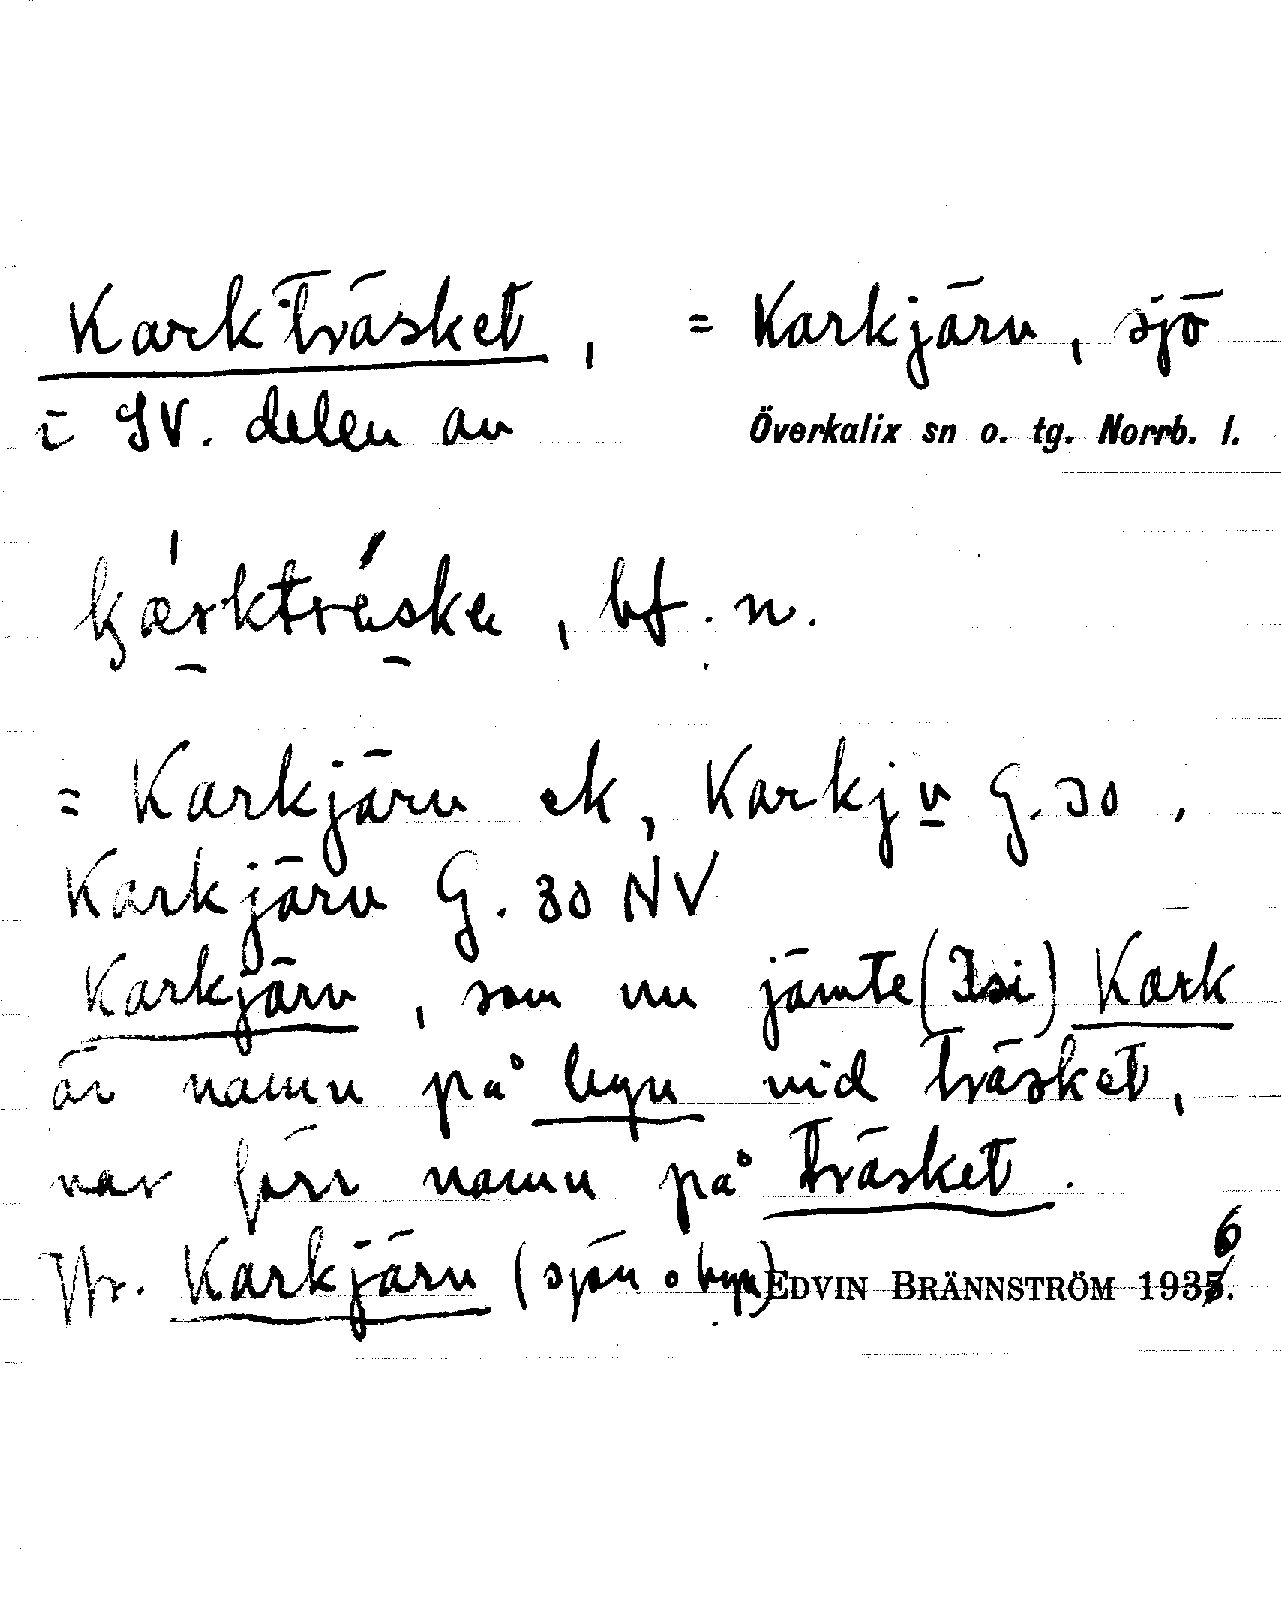 Karkträsket, = Karkjärv, sjö
i SV. delen av Överkalix sn o. tg. Norrb. l.
bf. n.
= Karkjärv ek, Karkjv G. 30,
Karkjärv G. 30 NV
Karkjärv, som nu jämte (Isi) Kark
är namn på byn vid träsket,
var förr namn på träsket.
Jfr. Karkjärv (sjön o byn) EDVIN BRÄNNSTRÖM 1936.